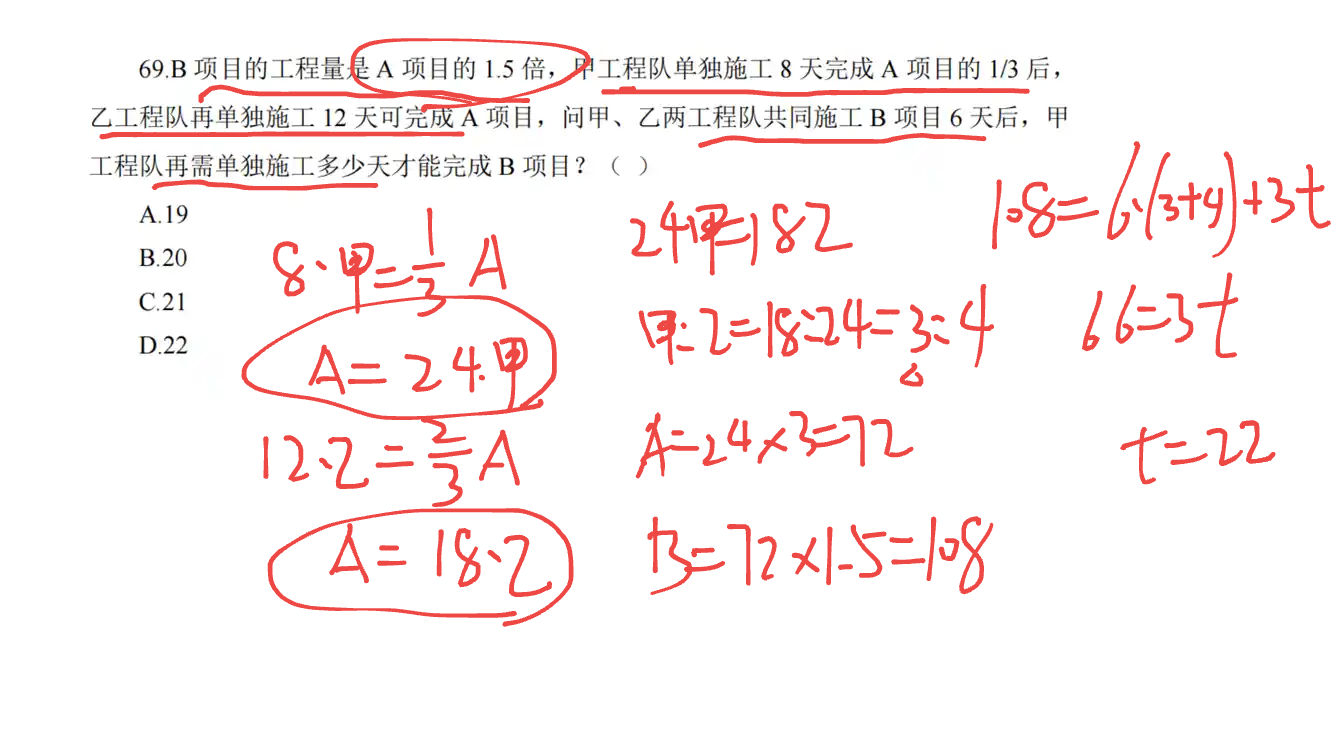 69.B 项目的工程量是 A 项目的 1.5 倍，甲工程队单独施工 8 天完成 A 项目的 1/3 后，
乙工程队再单独施工 12 天可完成 A 项目，问甲、乙两工程队共同施工 B 项目 6 天后，甲
工程队再需单独施工多少天才能完成 B 项目？（ ）
A.19
B.20
C.21
D.22
8·甲=1/3 A
A=24·甲
12·乙=2/3 A
A=18·乙
24甲=18乙
甲:乙=18:24=3:4
A=24×3=72
B=72×1.5=108
108=6·(3+4)+3t
66=3t
t=22